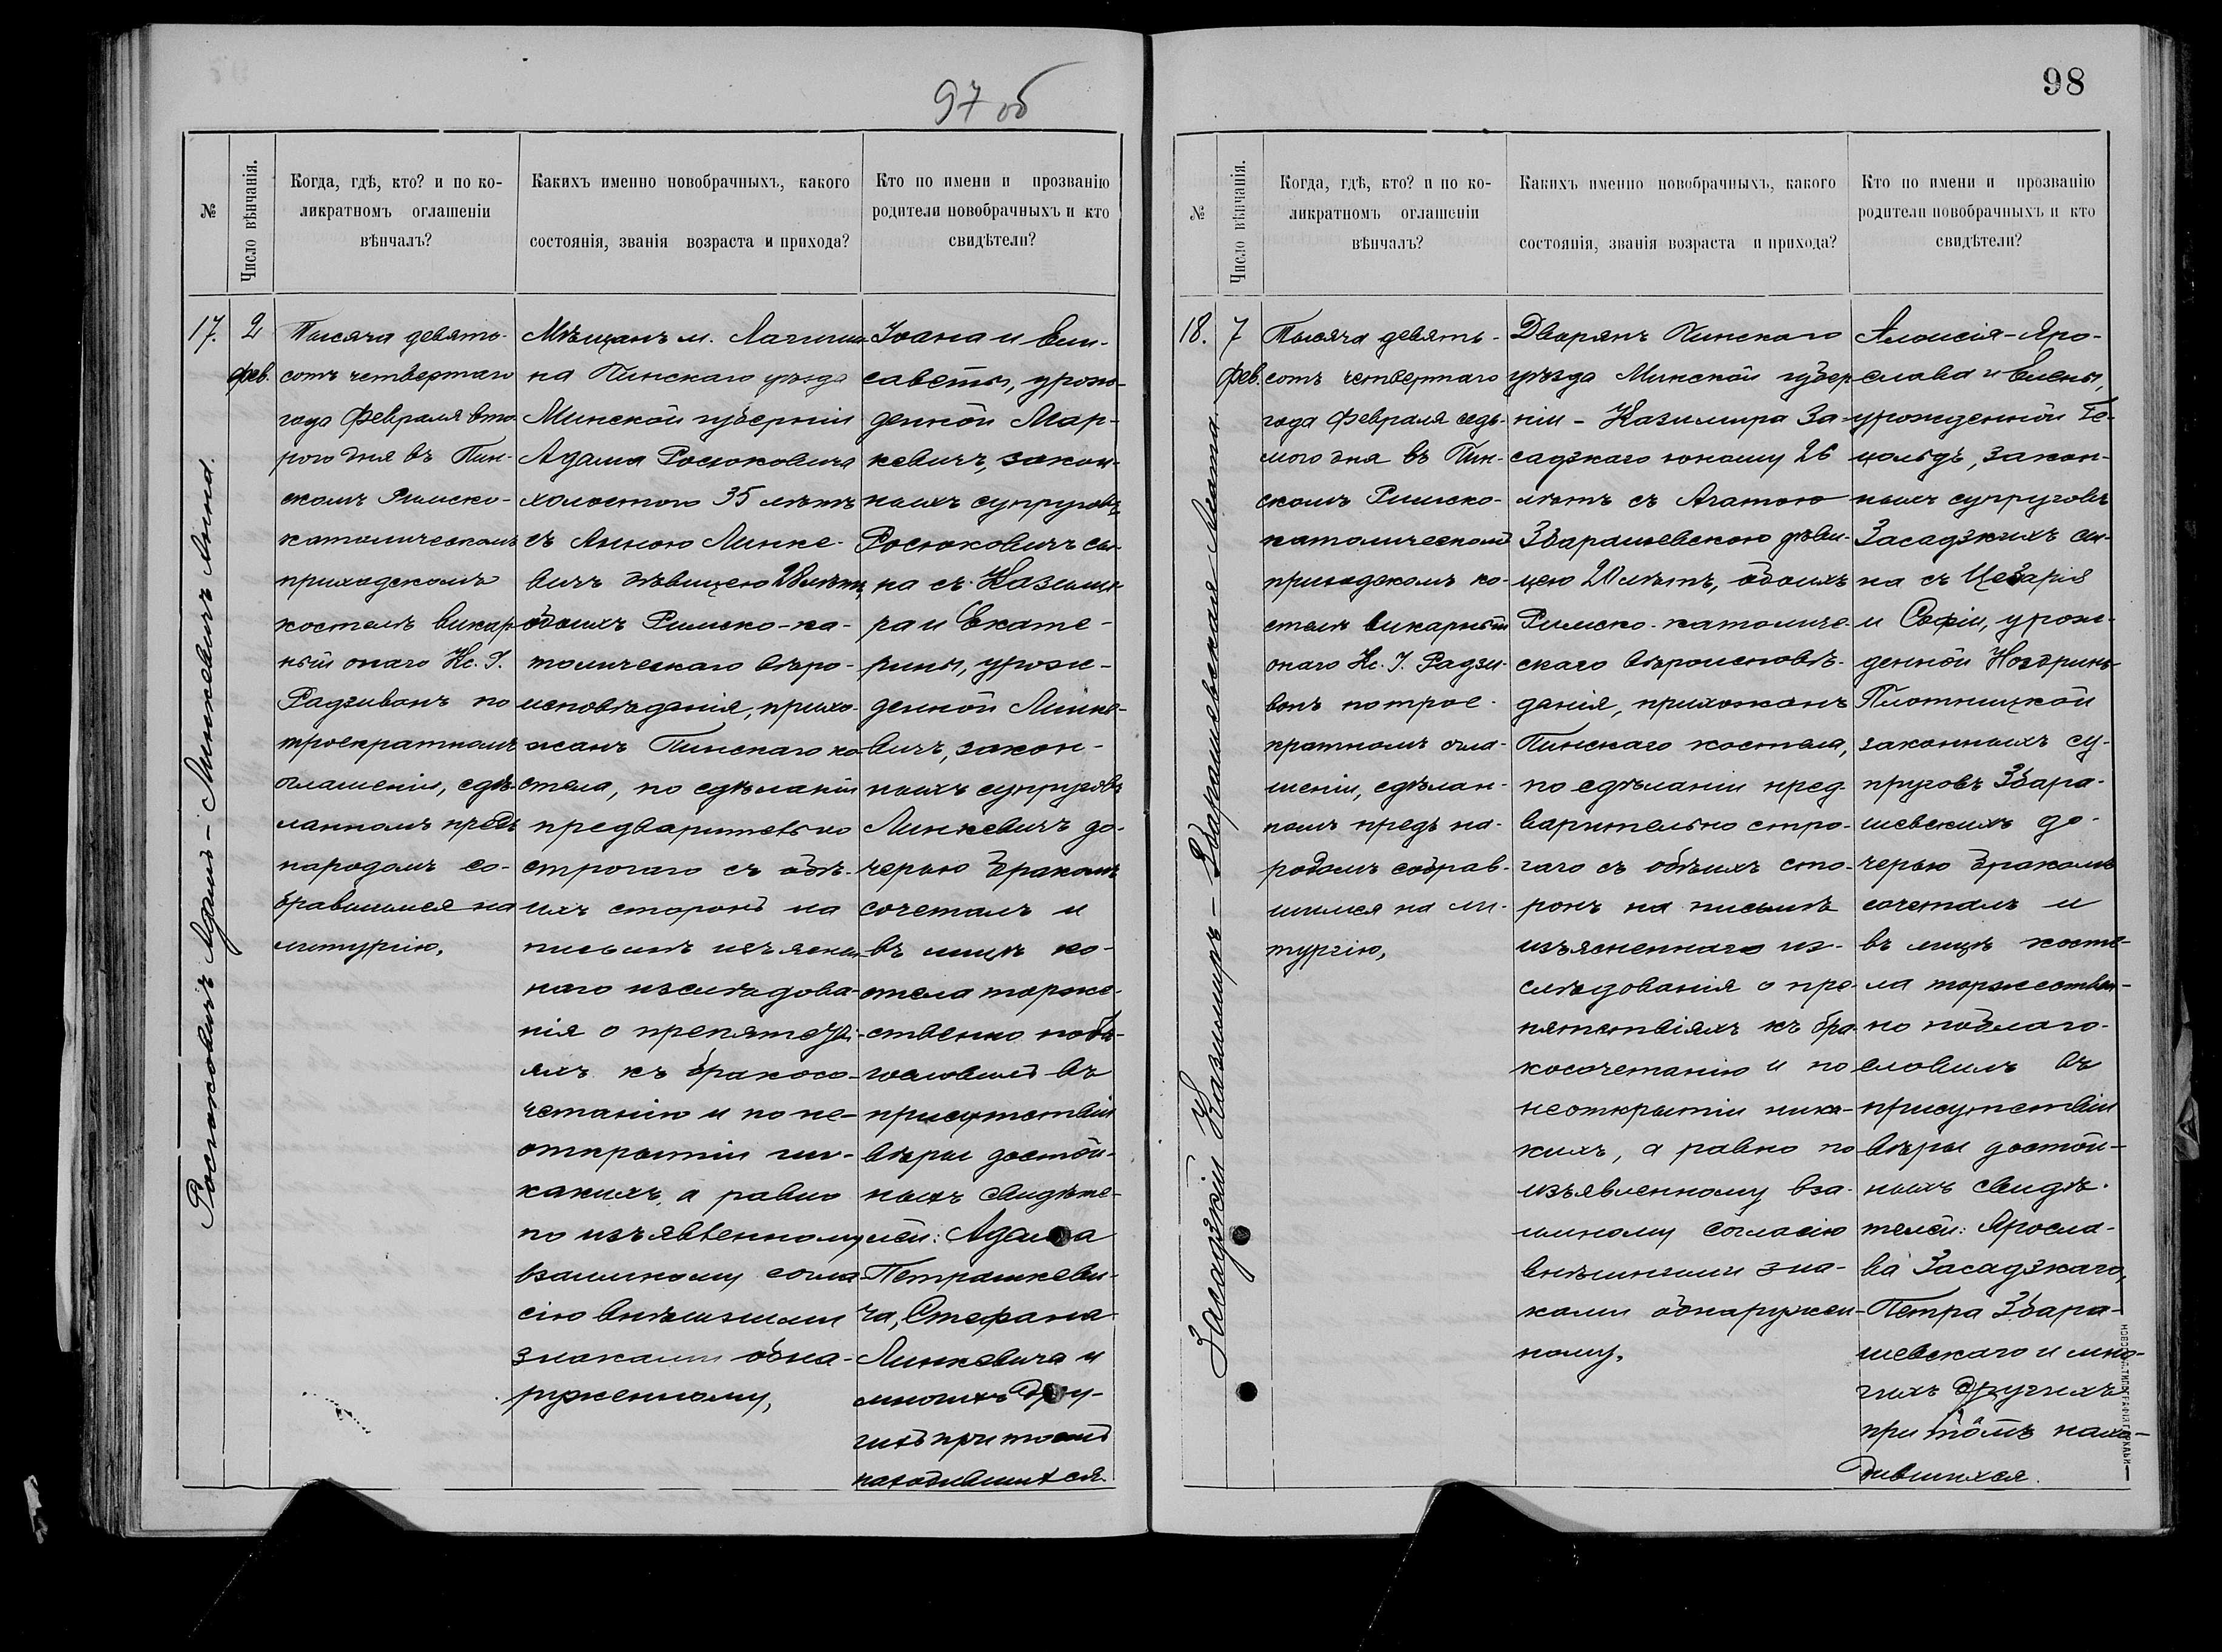 97 об
№
Число вѣнчанія.
Когда, гдѣ, кто? и по ко-
ликратномъ оглашеніи
вѣнчалъ?
Какихъ именно новобрачныхъ, какого
состоянія, званія возраста и прихода?
Кто по имени и прозванію
родители новобрачныхъ и кто
свидѣтели?
Росюковичъ Адамъ - Линкевичъ Анна.
17.
2
фев.
Тысяча девять-
сотъ четвертаго
года Февраля вто-
рого дня въ Пин-
скомъ Римско-
католическомъ
приходскомъ
костелѣ викар-
ный онаго Кс. I.
Радзивонъ по
троекратномъ
оглашеніи, сдѣ-
ланномъ предъ
народомъ со-
бравшимся на
литургію,
Мѣщанъ м. Логиши-
на Пинскаго уѣзда
Минской губерніи
Адама Росюковича
холостого 35 лѣтъ
съ Анною Линке-
вичъ дѣвицею 28 лѣтъ,
обоихъ Римско-ка-
толическаго вѣро-
исповѣданія, прихо-
жанъ Пинскаго ко-
стела, по сдѣланіи
предварительно
строгаго съ обѣ-
ихъ сторонъ на
письмѣ изъяснен-
наго изслѣдова-
нія о препятстві-
яхъ къ бракосо-
четанію и по не-
открытіи ни-
какихъ, а равно
по изъявленному
взаимному согла-
сію внѣшними
знаками обна-
руженному,
Іоана и Ели-
саветы, урож-
денной Мар-
кевичъ, закон-
ныхъ супруговъ
Росюковичъ сы-
на съ Казими-
ра и Екате-
рины, урож-
денной Линке-
вичъ, закон-
ныхъ супруговъ
Линкевичъ до-
черью бракомъ
сочеталъ и
въ лицѣ ко-
стела торже-
ственно побла-
гословилъ въ
присутствіи
вѣры достой-
ныхъ свидѣте-
лей: Адама
Петрашкеви-
ча, Стефана
Линкевича и
многихъ дру-
гихъ при томъ
находившихся.
98
№
Число вѣнчанія.
Когда, гдѣ, кто? и по ко-
ликратномъ оглашеніи
вѣнчалъ?
Какихъ именно новобрачныхъ, какого
состоянія, званія возраста и прихода?
Кто по имени и прозванію
родители новобрачныхъ и кто
свидѣтели?
Засадзкій Казимиръ - Збарашевская
18.
7
фев.
Тысяча девять-
сотъ четвертаго
года Февраля седь-
мого дня въ Пин-
скомъ Римско-
католическомъ
приходскомъ ко-
стелѣ викарный
онаго Кс. I. Радзи-
вонъ по трое-
кратномъ огла-
шеніи, сдѣлан-
номъ предъ на-
родомъ собрав-
шимся на ли-
тургію,
Дворянъ Пинскаго
уѣзда Минской губер-
ніи - Казимира За-
садзкаго юношу 26
лѣтъ съ Агатою
Збарашевскою дѣви-
цею 20 лѣтъ, обоихъ
Римско-католиче-
скаго вѣроисповѣ-
данія, прихожанъ
Пинскаго костела,
по сдѣланіи пред-
варительно стро-
гаго съ обѣихъ сто-
ронъ на письмѣ
изъясненнаго из-
слѣдованія о пре-
пятствіяхъ къ бра-
косочетанію и по
неоткрытіи ника-
кихъ, а равно по
изъявленному вза-
имному согласію
внѣшними зна-
ками обнаружен-
ному,
Алоисія-Яро-
слава и Елены,
урожденной Ге-
цольдъ, закон-
ныхъ супруговъ
Засадзкихъ сы-
на съ Цезарія
и Софіи, урож-
денной Ноздринъ-
Плотницкой
законныхъ су-
пруговъ Збара-
шевскихъ до-
черью бракомъ
сочеталъ и
въ лицѣ косте-
ла торжествен-
но поблаго-
словилъ въ
присутствіи
вѣры достой-
ныхъ свидѣ-
телей: Яросла-
ва Засадзкаго,
Петра Збара-
шевскаго и мно-
гихъ другихъ
при томъ нахо-
дившихся.